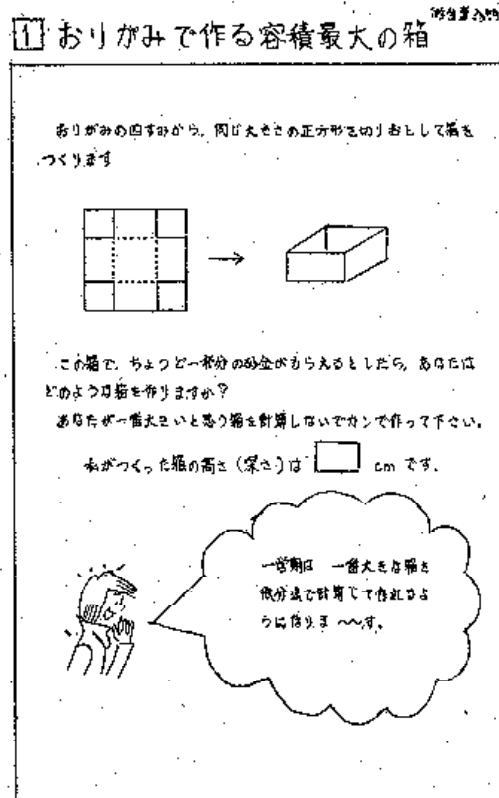 1 おりがみで作る容積最大の箱
おりがみの四すみから、同じ大きさの正方形を切りおとして箱を
つくります
この箱で、ちょうど一杯分の砂金がもらえるとしたら、あなたは
どのような箱を作りますか?
あなたが一番大きいと思う箱を計算しないでカンで作って下さい。
私がつくった箱の高さ(深さ)は cm です.
一学期は 一番大きな箱を
微分法で計算して作れるよ
うになりま〜〜す。